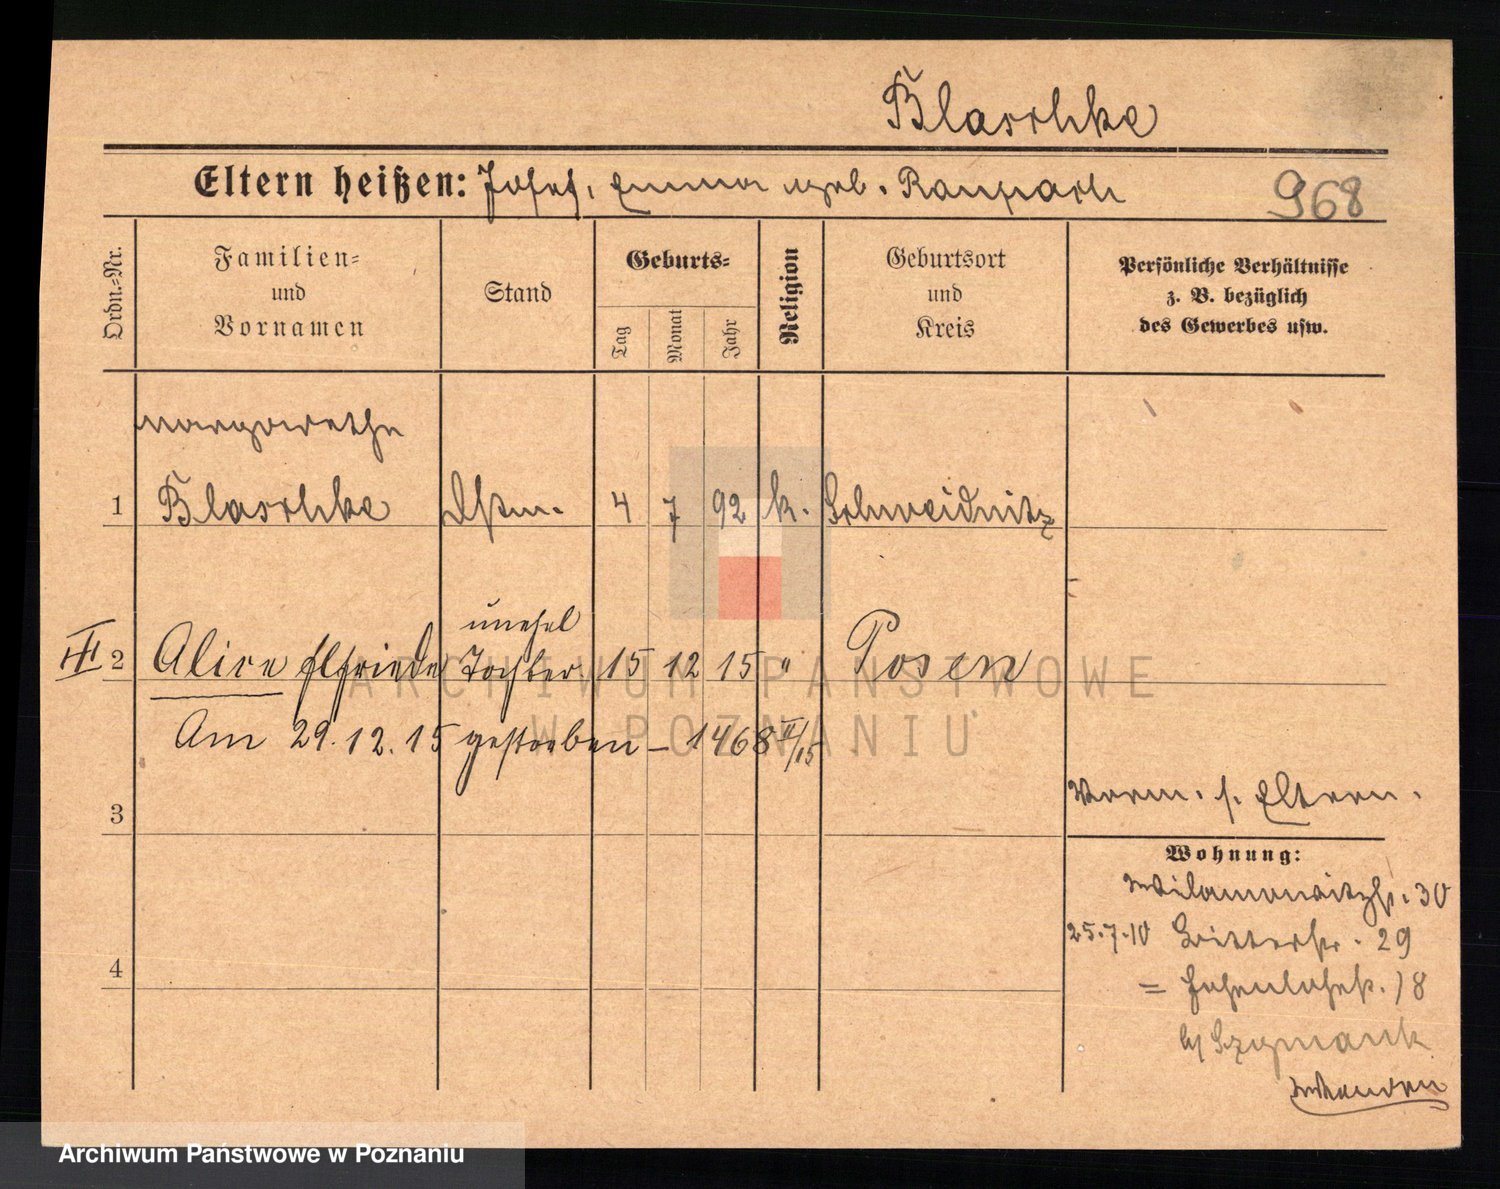 Blaschke
Eltern heißen: Josef, Emma geb. Raupach
968
Ordn.-Nr.
Familien-
und
Vornamen
Stand
Geburts-
Tag
Monat
Jahr
Religion
Geburtsort
und
Kreis
Persönliche Verhältnisse
z. B. bezüglich
des Gewerbes usw.
Margarethe
1 Blaschke 4 7 92 k. Schweidnitz
unehel
III 2 Alice Elfriede Tochter 15 12 15 " Posen
Am 29.12.15 gestorben – 1468 II/15
3
Vorm. s. Eltern.
Wohnung:
Wilamowitzstr. 30
25.7.10 Ritterstr. 29
= Hohenlohestr. 18
b/ Szymank
4
ARCHIWUM PAŃSTWOWE
W POZNANIU
Archiwum Państwowe w Poznaniu